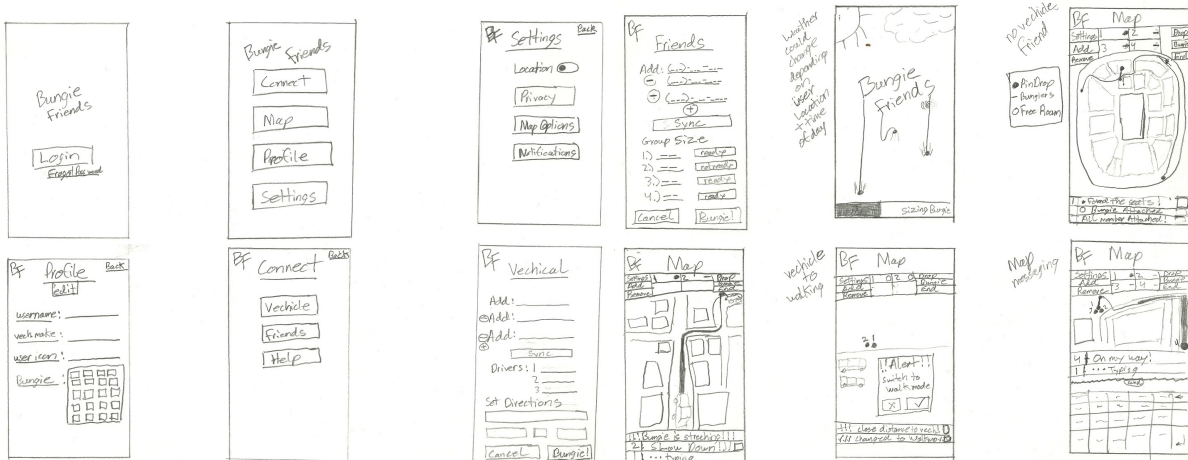 Bungie
Friends
Login
Forgot Password
Bungie Friends
Connect
Map
Profile
Settings
BF Settings Back
Location
Privacy
Map Options
Notifications
BF
Friends
Add: (...)-...-....
(...)-...-....
(...)-...-....
Sync
Group Size
1.) ready
2.) not ready
3.) ready
4.) ready
Cancel Bungie!
weather
could
change
depending
on
user
Location
+ time
of day
Bungie
Friends
sizing Bungie
no vechicle
Friend
Pin Drop
Bungiers
Free Roam
BF Map
Settings 1 2 Drop
Add 3 4 Bungie
Remove End
1 Found the seats!
Bungie Attached
All member Attached!
BF Profile Back
edit
username:
vech.make:
user icon:
Bungie:
BF Connect Back
Vechicle
Friends
Help
BF Vechical
Add:
Add:
Add:
Sync
Drivers: 1
2
3
Set Directions
Cancel Bungie!
BF Map
Settings 1 2 Drop
Add Bungie
Remove End
!! Bungie is streching!!!
2 Slow Down!!
1 ... typing
vechicle
to
walking
BF Map
Settings 2 Drop
Add Bungie
Remove End
2 1
!! Alert!!
switch to
walk mode
X ✓
!!! close distance to vech!
!!! changed to Walking
Map
messaging
BF Map
Settings 1 2 Drop
Add 3 4 Bungie
Remove End
4 On my way!
1 ... Typing